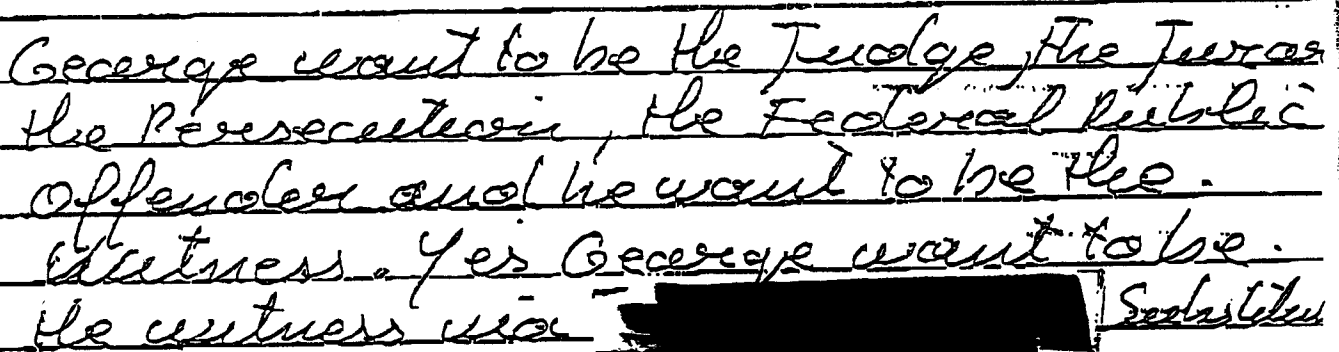 George want to be the Judge, the Juror
the Persecution, the Federal Public
Offender and he want to be the.
Witness. Yes George want to be.
the witness via